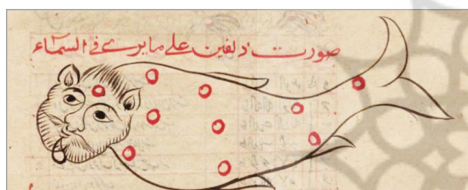 صورت دلفين على ما يرى فى السماء